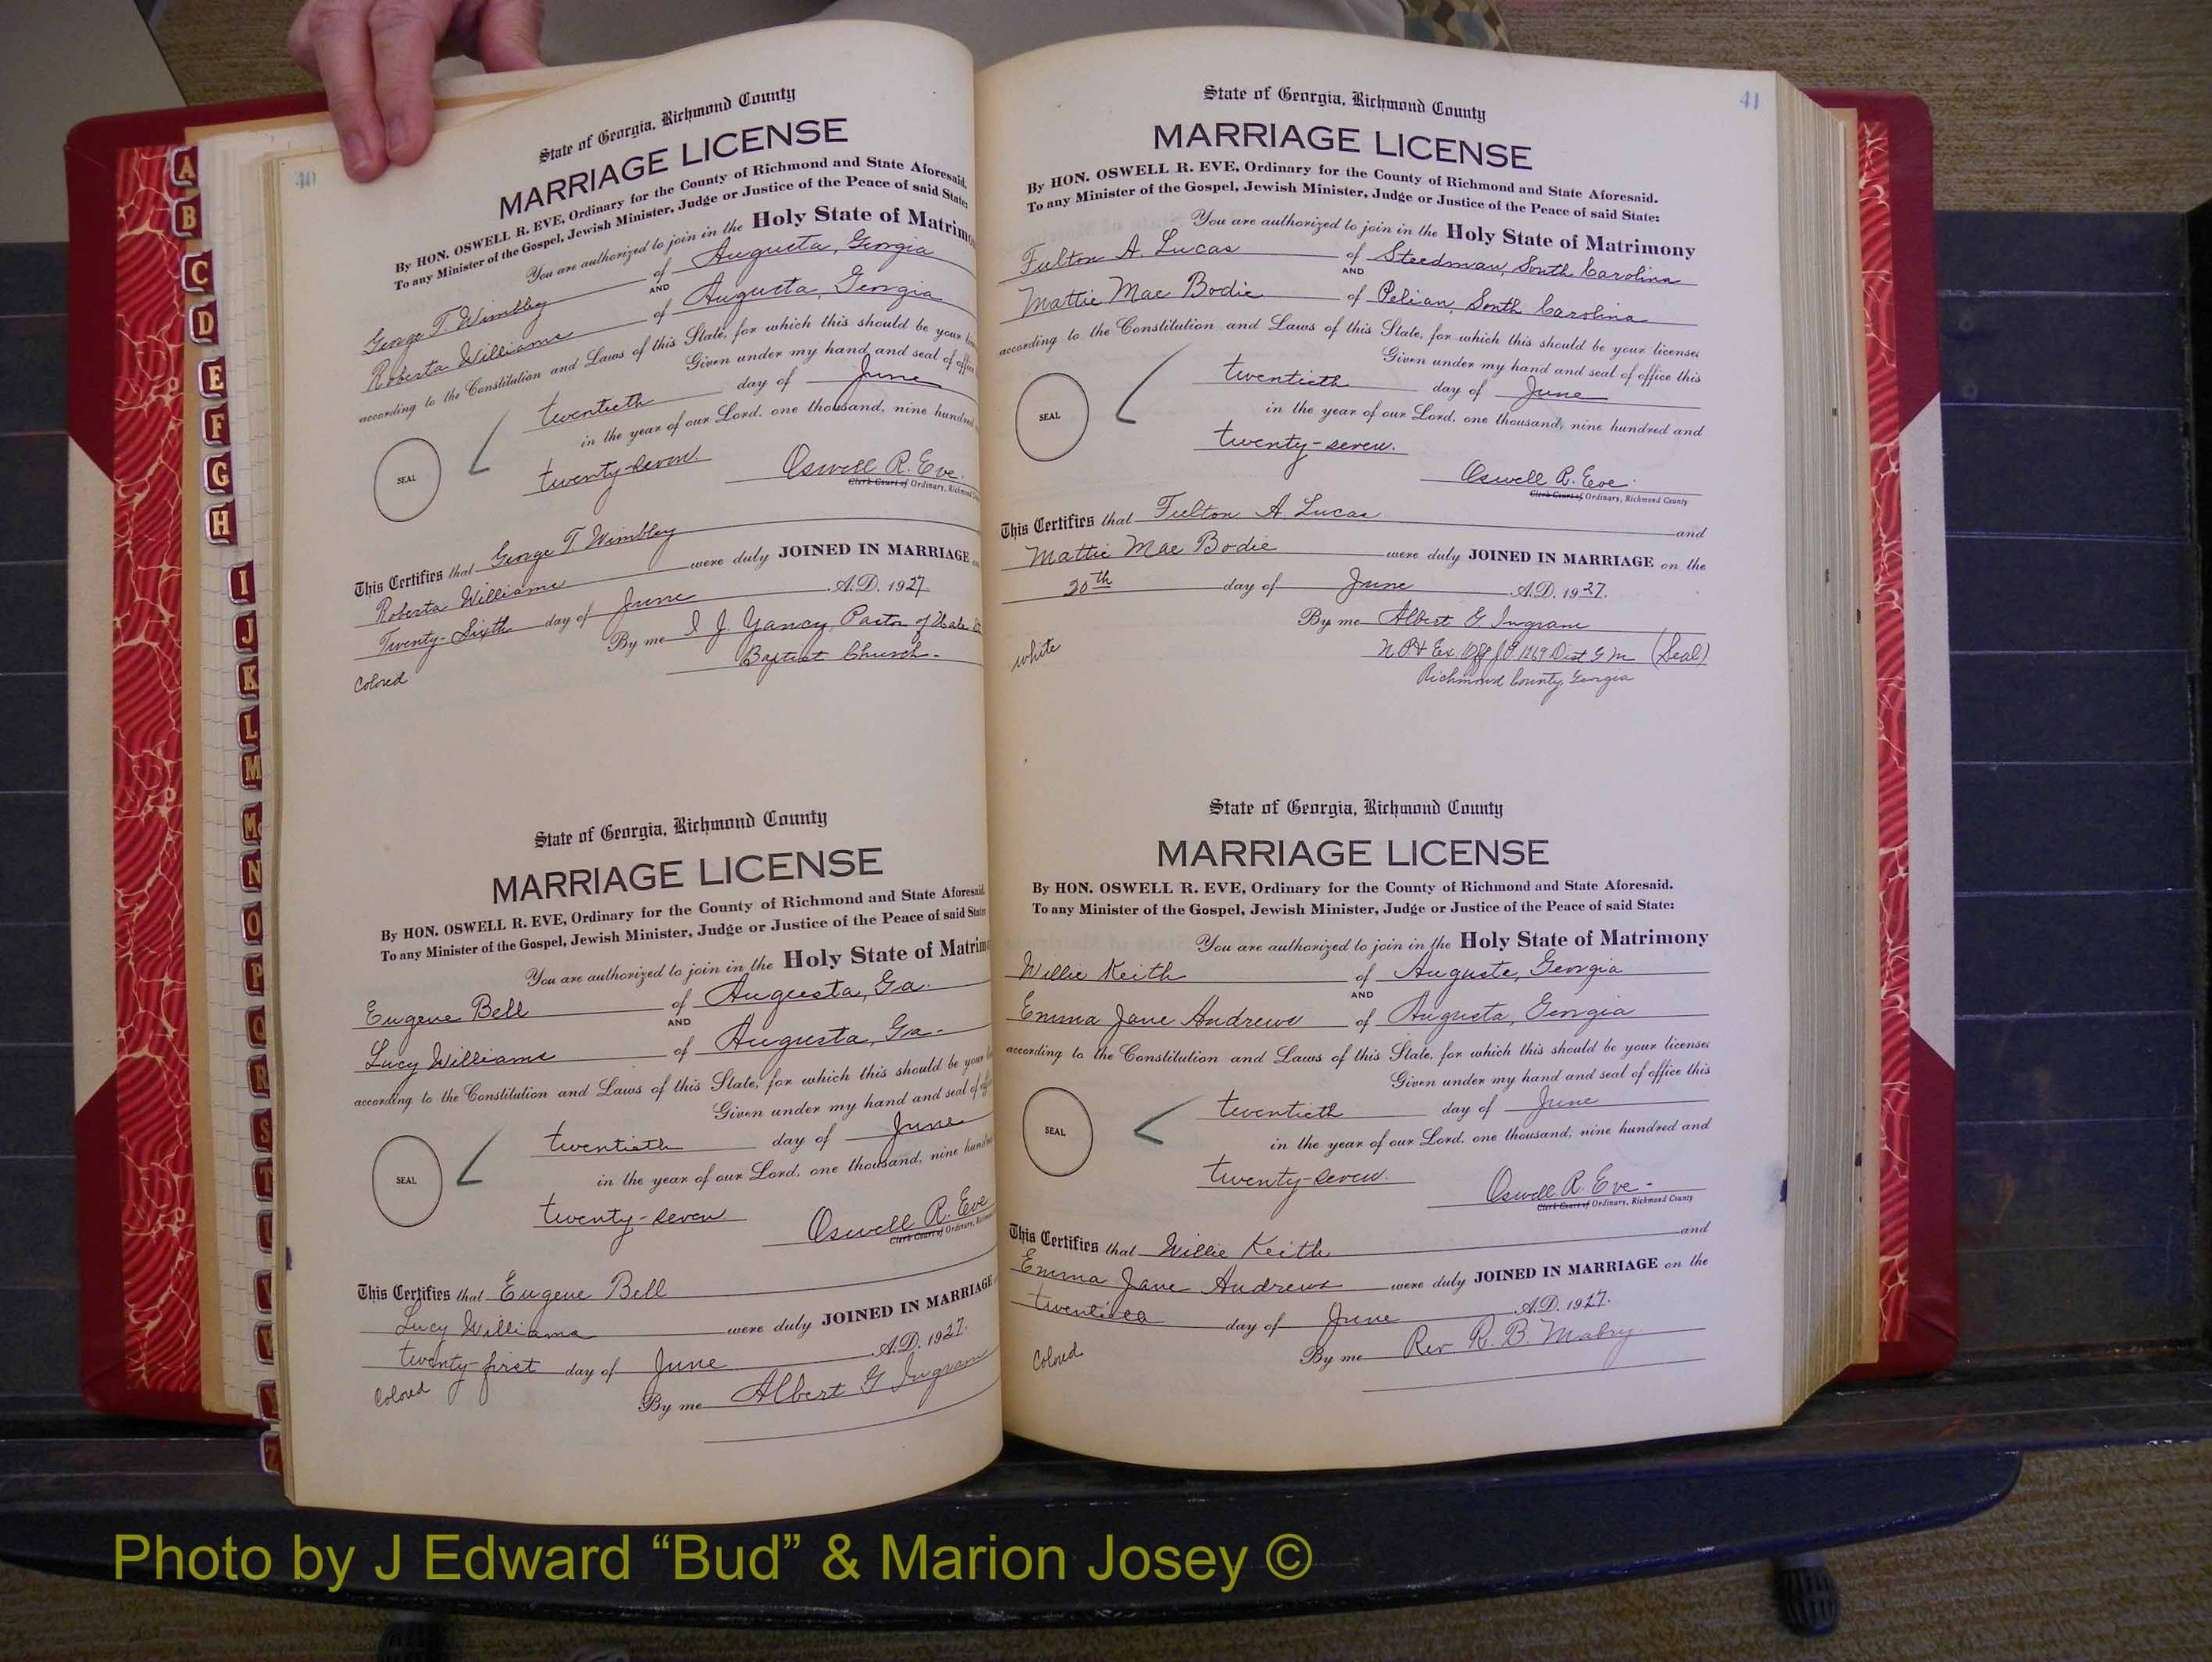 A
B
C
D
E
F
G
H
I
J
K
L
M
M
N
O
P
Q
R
S
T
U
V
W
Y
Z
40
State of Georgia, Richmond County
MARRIAGE LICENSE
By HON. OSWELL R. EVE, Ordinary for the County of Richmond and State Aforesaid.
To any Minister of the Gospel, Jewish Minister, Judge or Justice of the Peace of said State:
You are authorized to join in the Holy State of Matrimo
George T Wimbley of Augusta, Georgia
AND
Roberta Williams of Augusta, Georgia
according to the Constitution and Laws of this State, for which this should be your
Given under my hand and seal of office
twentieth day of June
in the year of our Lord, one thousand, nine hundred
SEAL
twenty-seven.
Oswell R. Eve.
Clerk Court of Ordinary, Richmond
This Certifies that George T Wimbley
Roberta Williams were duly JOINED IN MARRIAGE
Twenty-Sixth day of June A.D. 1927.
By me I J. Yancy, Pastor of
Baptist Church.
Colored
State of Georgia, Richmond County
MARRIAGE LICENSE
By HON. OSWELL R. EVE, Ordinary for the County of Richmond and State Aforesaid.
To any Minister of the Gospel, Jewish Minister, Judge or Justice of the Peace of said State:
You are authorized to join in the Holy State of Matrim
Eugene Bell of Augusta, Ga.
AND
Lucy Williams of Augusta, Ga.
according to the Constitution and Laws of this State, for which this should be your
Given under my hand and seal of
twentieth day of June
in the year of our Lord, one thousand, nine hund
SEAL
twenty-seven
Oswell R. Eve
Clerk Court of Ordinary,
This Certifies that Eugene Bell
Lucy Williams were duly JOINED IN MARRIAGE
twenty-first day of June A.D. 1927.
Colored
By me Albert G Ingram
41
State of Georgia, Richmond County
MARRIAGE LICENSE
By HON. OSWELL R. EVE, Ordinary for the County of Richmond and State Aforesaid.
To any Minister of the Gospel, Jewish Minister, Judge or Justice of the Peace of said State:
You are authorized to join in the Holy State of Matrimony
Fulton A. Lucas of Steedman, South Carolina
AND
Mattie Mae Bodie of Pelian, South Carolina
according to the Constitution and Laws of this State, for which this should be your license:
Given under my hand and seal of office this
twentieth day of June
in the year of our Lord, one thousand, nine hundred and
SEAL
twenty-seven.
Oswell R. Eve.
Clerk Court of Ordinary, Richmond County
This Certifies that Fulton A. Lucas and
Mattie Mae Bodie were duly JOINED IN MARRIAGE on the
20th day of June A.D. 1927.
By me Albert G. Ingram
white
N.P. & Ex. Off J.P. 1269 Dist G M (Seal)
Richmond County, Georgia
State of Georgia, Richmond County
MARRIAGE LICENSE
By HON. OSWELL R. EVE, Ordinary for the County of Richmond and State Aforesaid.
To any Minister of the Gospel, Jewish Minister, Judge or Justice of the Peace of said State:
You are authorized to join in the Holy State of Matrimony
Willie Keith of Augusta, Georgia
AND
Emma Jane Andrews of Augusta, Georgia
according to the Constitution and Laws of this State, for which this should be your license:
Given under my hand and seal of office this
twentieth day of June
in the year of our Lord, one thousand, nine hundred and
SEAL
twenty-seven.
Oswell R. Eve
Clerk Court of Ordinary, Richmond County
This Certifies that Willie Keith and
Emma Jane Andrews were duly JOINED IN MARRIAGE on the
day of June A.D. 1927.
Colored
By me Rev R. B. Mabry
Photo by J Edward “Bud” & Marion Josey ©